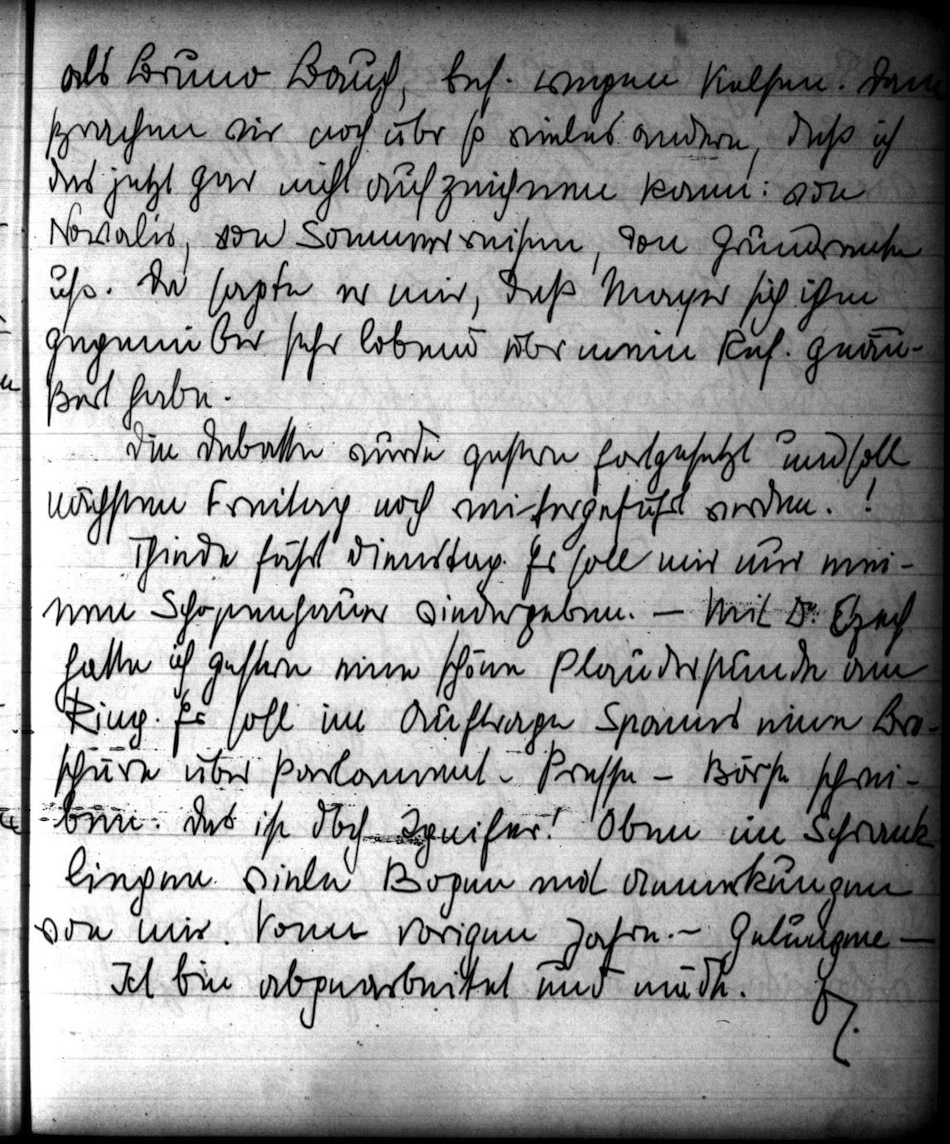 als Bruno Bauch, bes. wegen Kelsen. Dann
sprachen wir noch über so vieles andere, daß ich
das jetzt gar nicht aufzeichnen kann: von
Novalis, von Sommerreisen, von
usw. Da sagte er mir, daß Mayer sich ihm
gegenüber sehr lobend über mein Ref. geäu-
ßert habe.
Die Debatte wurde gestern fortgesetzt und soll
nächsten Freitag noch weitergeführt werden. !
Thiede fährt Dienstag. Er soll mir nur mei-
nen Schopenhauer wiedergeben. — Mit Dr.
hatte ich gestern eine schöne Plauderstunde am
Ring. Er soll im Auftrage Spanns eine Bro-
schüre über Parlament - Presse - Börse schrei-
ben. Das ist doch Ignifer! Oben im Schrank
liegen viele Bogen mit Anmerkungen
von mir. Vom vorigen Jahre. -
Ich bin abgearbeitet und müde.